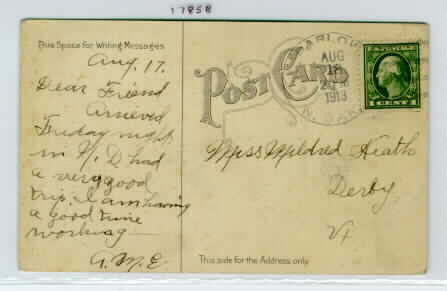 17858
This Space for Writing Messages
Aug. 17.
Dear Friend
Arrieved
Friday night
in N. D had
a very good
trip. I am having
a good time
working —
A. M. E.
POST CARD
BARLOW
AUG
18
1913
N. DAK.
1 CENT 1
Miss Mildred Heath
Derby
Vt
This side for the Address only